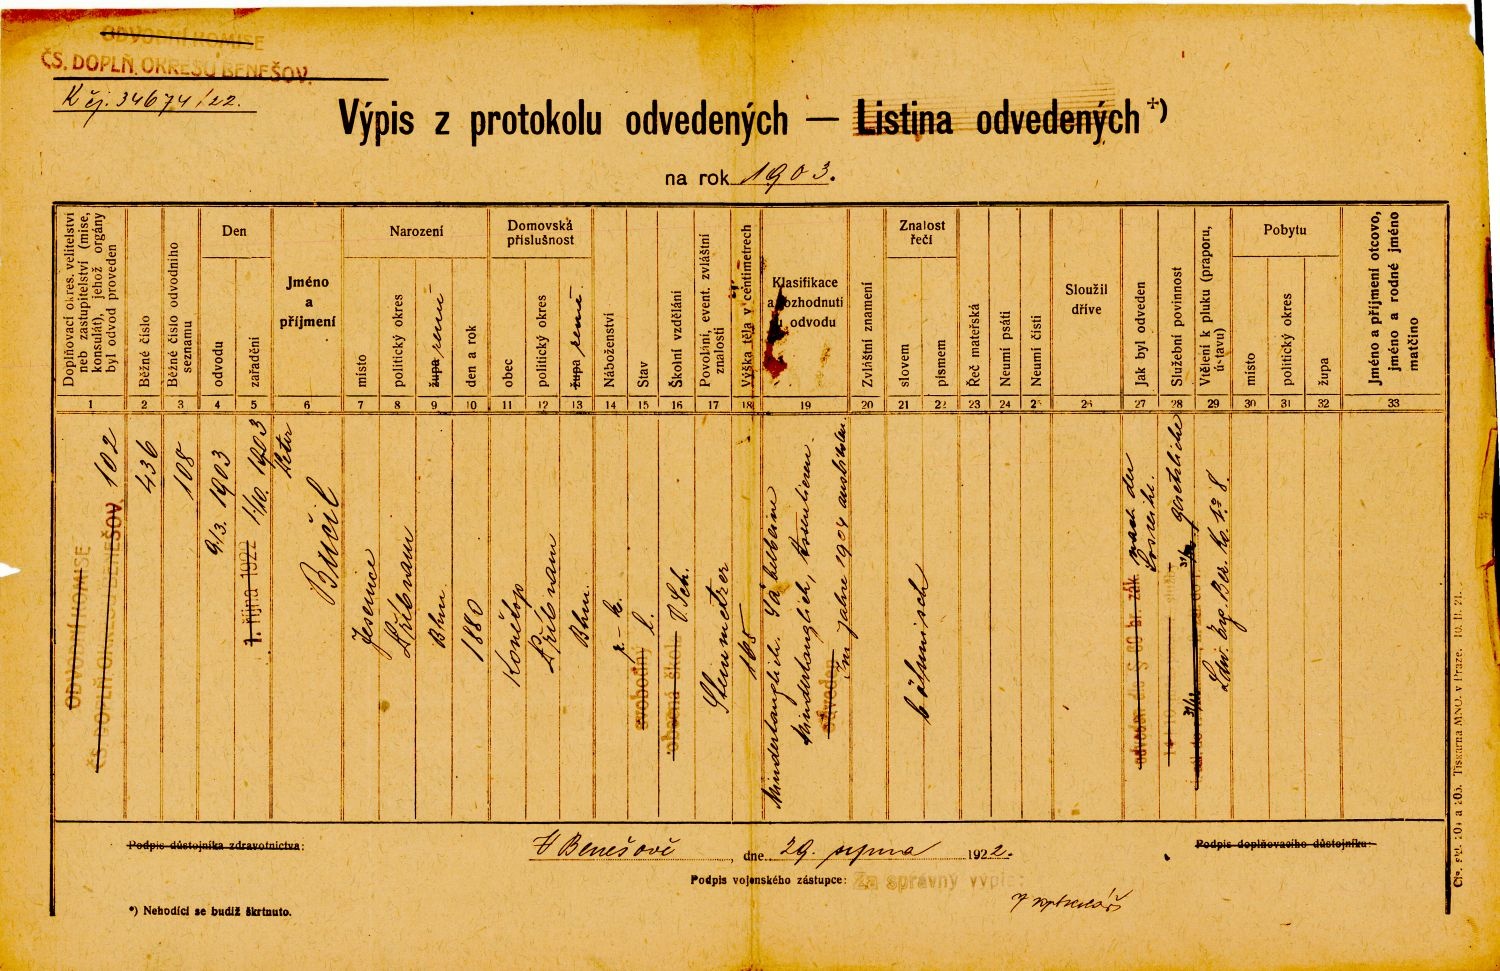 ODVODNÍ KOMISE
ČS. DOPLŇ. OKRESU BENEŠOV.
K čj. 34674/22.
Výpis z protokolu odvedených — Listina odvedených +)
na rok 1903.
Doplňovací okres. velitelství
neb zastupitelství (mise,
konsulát), jehož orgány
byl odvod proveden
Běžné číslo
Běžné číslo odvodního
seznamu
Den
odvodu
zařadění
Jméno
a
příjmení
Narození
místo
politický okres
župa země
den a rok
Domovská
příslušnost
obec
politický okres
župa země
Náboženství
Stav
Školní vzdělání
Povolání, event. zvláštní
znalosti
Výška těla v centimetrech
Klasifikace
a rozhodnutí
odvodu
Zvláštní znamení
Znalost
řečí
slovem
písmem
Řeč mateřská
Neumí psáti
Neumí čísti
Sloužil
dříve
Jak byl odveden
Služební povinnost
Vtělení k pluku (praporu,
ústavu)
Pobytu
místo
politický okres
župa
Jméno a příjmení otcovo,
jméno a rodné jméno
matčino
1 2 3 4 5 6 7 8 9 10 11 12 13 14 15 16 17 18 19 20 21 22 23 24 25 26 27 28 29 30 31 32 33
ODVODNÍ KOMISE
ČS. DOPLŇ. OKRESU BENEŠOV.
102
436
108
9./3. 1903
1. října 1922
1./10. 1903
Petr
Bučil
Jesenice
Příbram
Bhm.
1880
Příbram
Bhm.
r.-k.
svobodný
l.
obecná škol.
V. Sch.
Steinmetzer
165
Mindertauglich.
Mindertauglich, Assentieren.
odveden
Im Jahre 1904
böhmisch
odveden dle § 60 br. zák.
nach der
Losreihe.
gesetzliche
31/12
31/12
Ldw. Erg. Bez. Ko. No 8.
Podpis důstojníka zdravotnictva:
V Benešově, dne 29. srpna 1922.
Podpis doplňovacího důstojníka:
Podpis vojenského zástupce: Za správný výpis:
*) Nehodící se budiž škrtnuto.